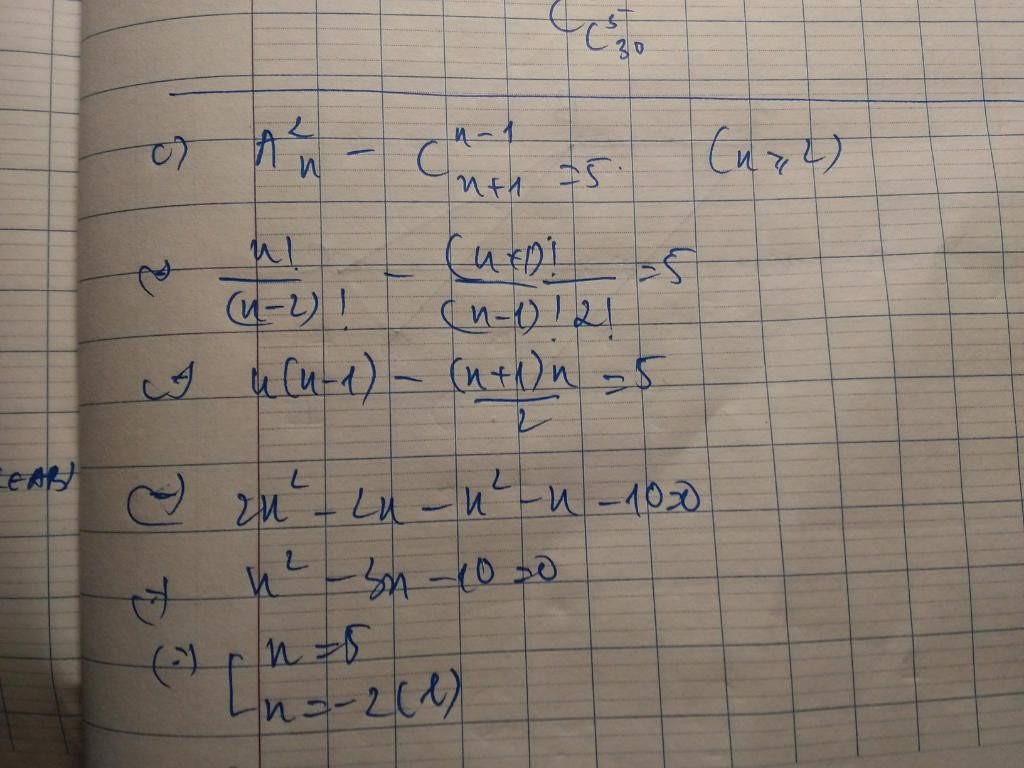 C⁵₃₀
c) A²ₙ - Cⁿ⁻¹ₙ₊₁ = 5. (n ≥ 2)
⇔ n!/(n-2)! - (n+1)!/((n-1)!2!) = 5
⇔ n(n-1) - (n+1)n/2 = 5
⇔ 2n² - 2n - n² - n - 10 = 0
⇔ n² - 3n - 10 = 0
⇔ [ n = 5
n = -2 (l)